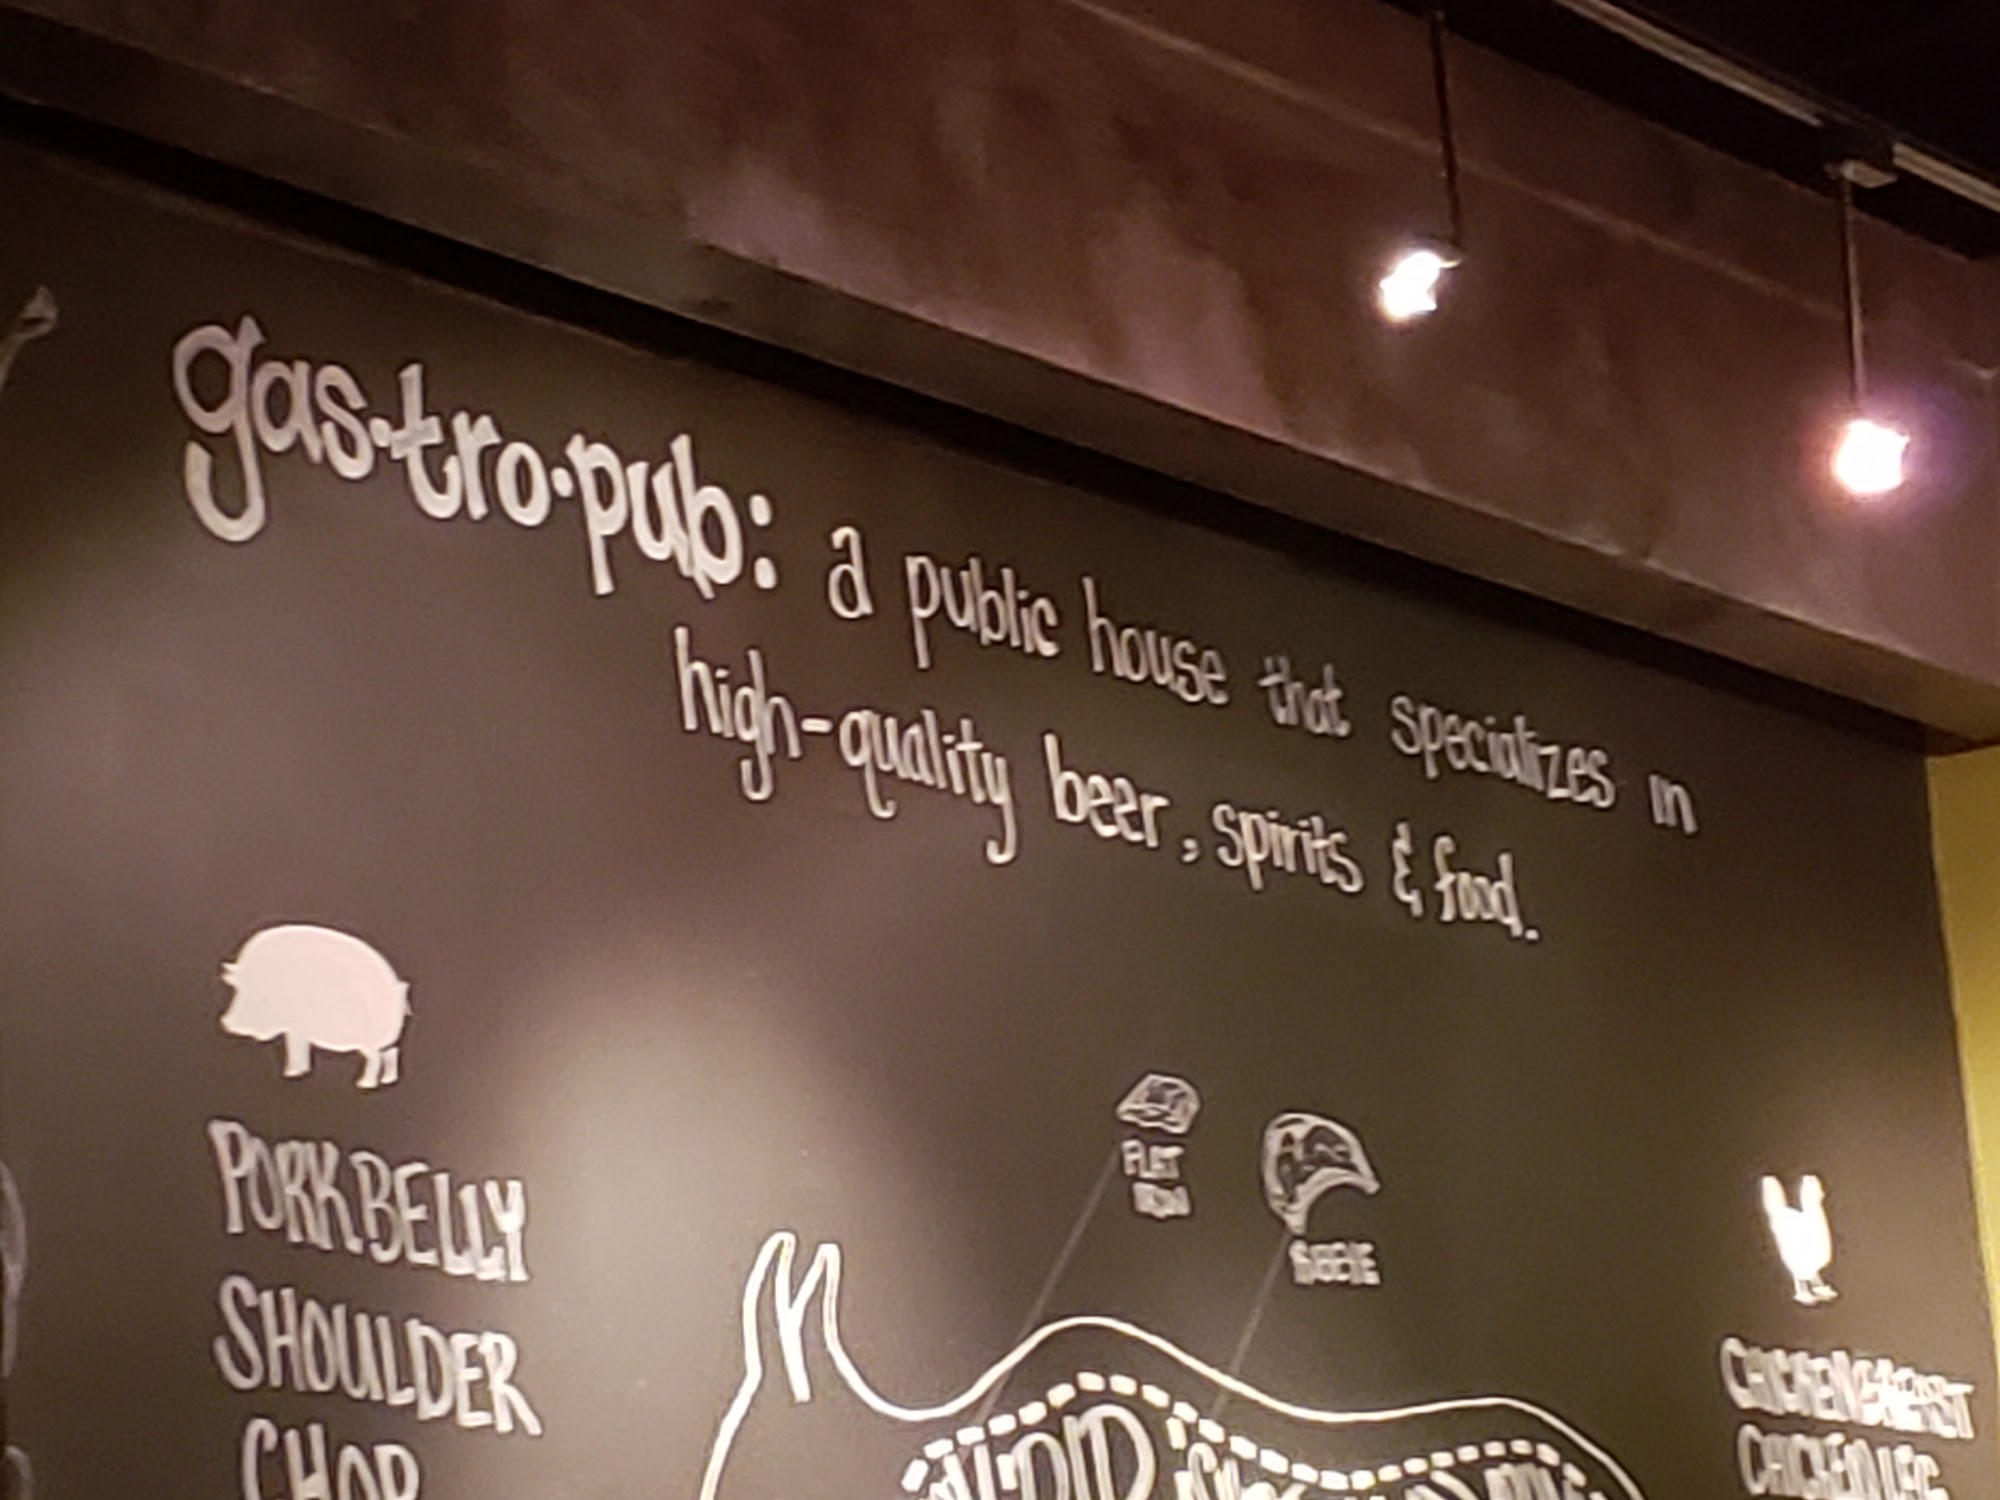 gas·tro·pub: a public house that specializes in
high-quality beer, spirits & food.
PORK BELLY
SHOULDER
CHOP
FLAT
IRON
RIBEYE
CHICKEN BREAST
CHICKEN LEG